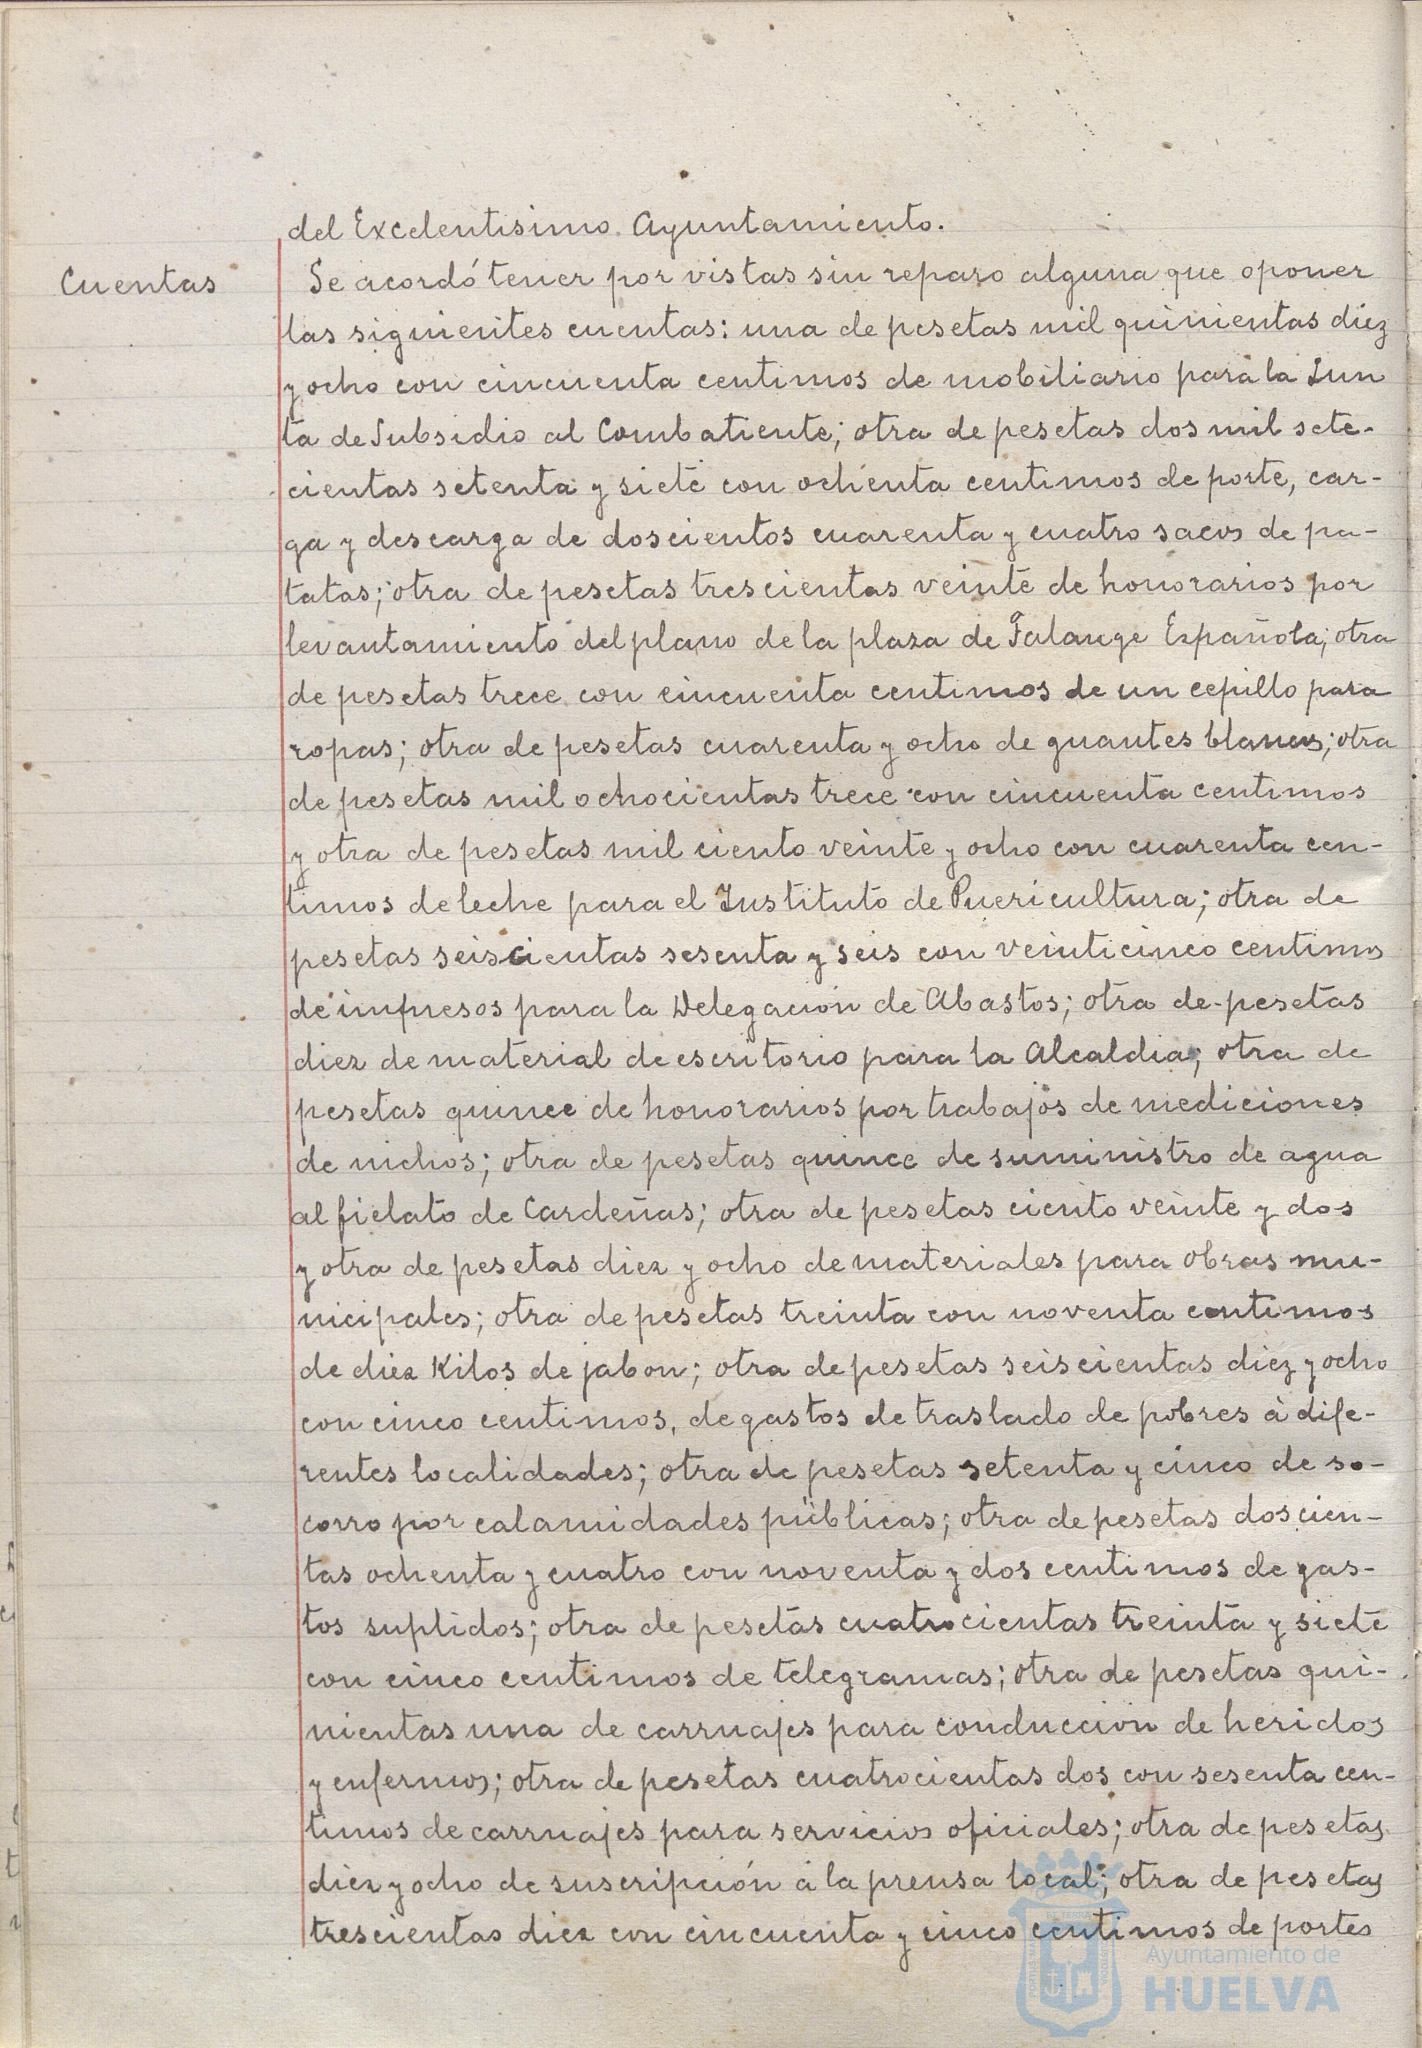 del Excelentisimo Ayuntamiento.
Cuentas
Se acordó tener por vistas sin reparo alguna que oponer
las siguientes cuentas: una de pesetas mil quinientas diez
y ocho con cincuenta centimos de mobiliario para la Jun
ta de Subsidio al Combatiente; otra de pesetas dos mil sete-
cientas setenta y siete con ochenta centimos de porte, car-
ga y descarga de doscientos cuarenta y cuatro sacos de pa-
tatas; otra de pesetas trescientas veinte de honorarios por
levantamiento del plano de la plaza de Falange Española; otra
de pesetas trece con cincuenta centimos de un cepillo para
ropas; otra de pesetas cuarenta y ocho de guantes blancos; otra
de pesetas mil ochocientas trece con cincuenta centimos
y otra de pesetas mil ciento veinte y ocho con cuarenta cen-
timos de leche para el Instituto de Puericultura; otra de
pesetas seiscientas sesenta y seis con veinticinco centimos
de impresos para la Delegación de Abastos; otra de pesetas
diez de material de escritorio para la Alcaldia; otra de
pesetas quince de honorarios por trabajos de mediciones
de nichos; otra de pesetas quince de suministro de agua
al fielato de Cardeñas; otra de pesetas ciento veinte y dos
y otra de pesetas diez y ocho de materiales para obras mu-
nicipales; otra de pesetas treinta con noventa centimos
de diez Kilos de jabon; otra de pesetas seiscientas diez y ocho
con cinco centimos, de gastos de traslado de pobres à dife-
rentes localidades; otra de pesetas setenta y cinco de so-
corro por calamidades públicas; otra de pesetas doscien-
tas ochenta y cuatro con noventa y dos centimos de gas-
tos suplidos; otra de pesetas cuatrocientas treinta y siete
con cinco centimos de telegramas; otra de pesetas qui-
nientas una de carruajes para conducción de heridos
y enfermos; otra de pesetas cuatrocientas dos con sesenta cen-
timos de carruajes para servicios oficiales; otra de pesetas
diez y ocho de suscripción á la prensa local; otra de pesetas
trescientas diez con cincuenta y cinco centimos de portes
Ayuntamiento de
HUELVA